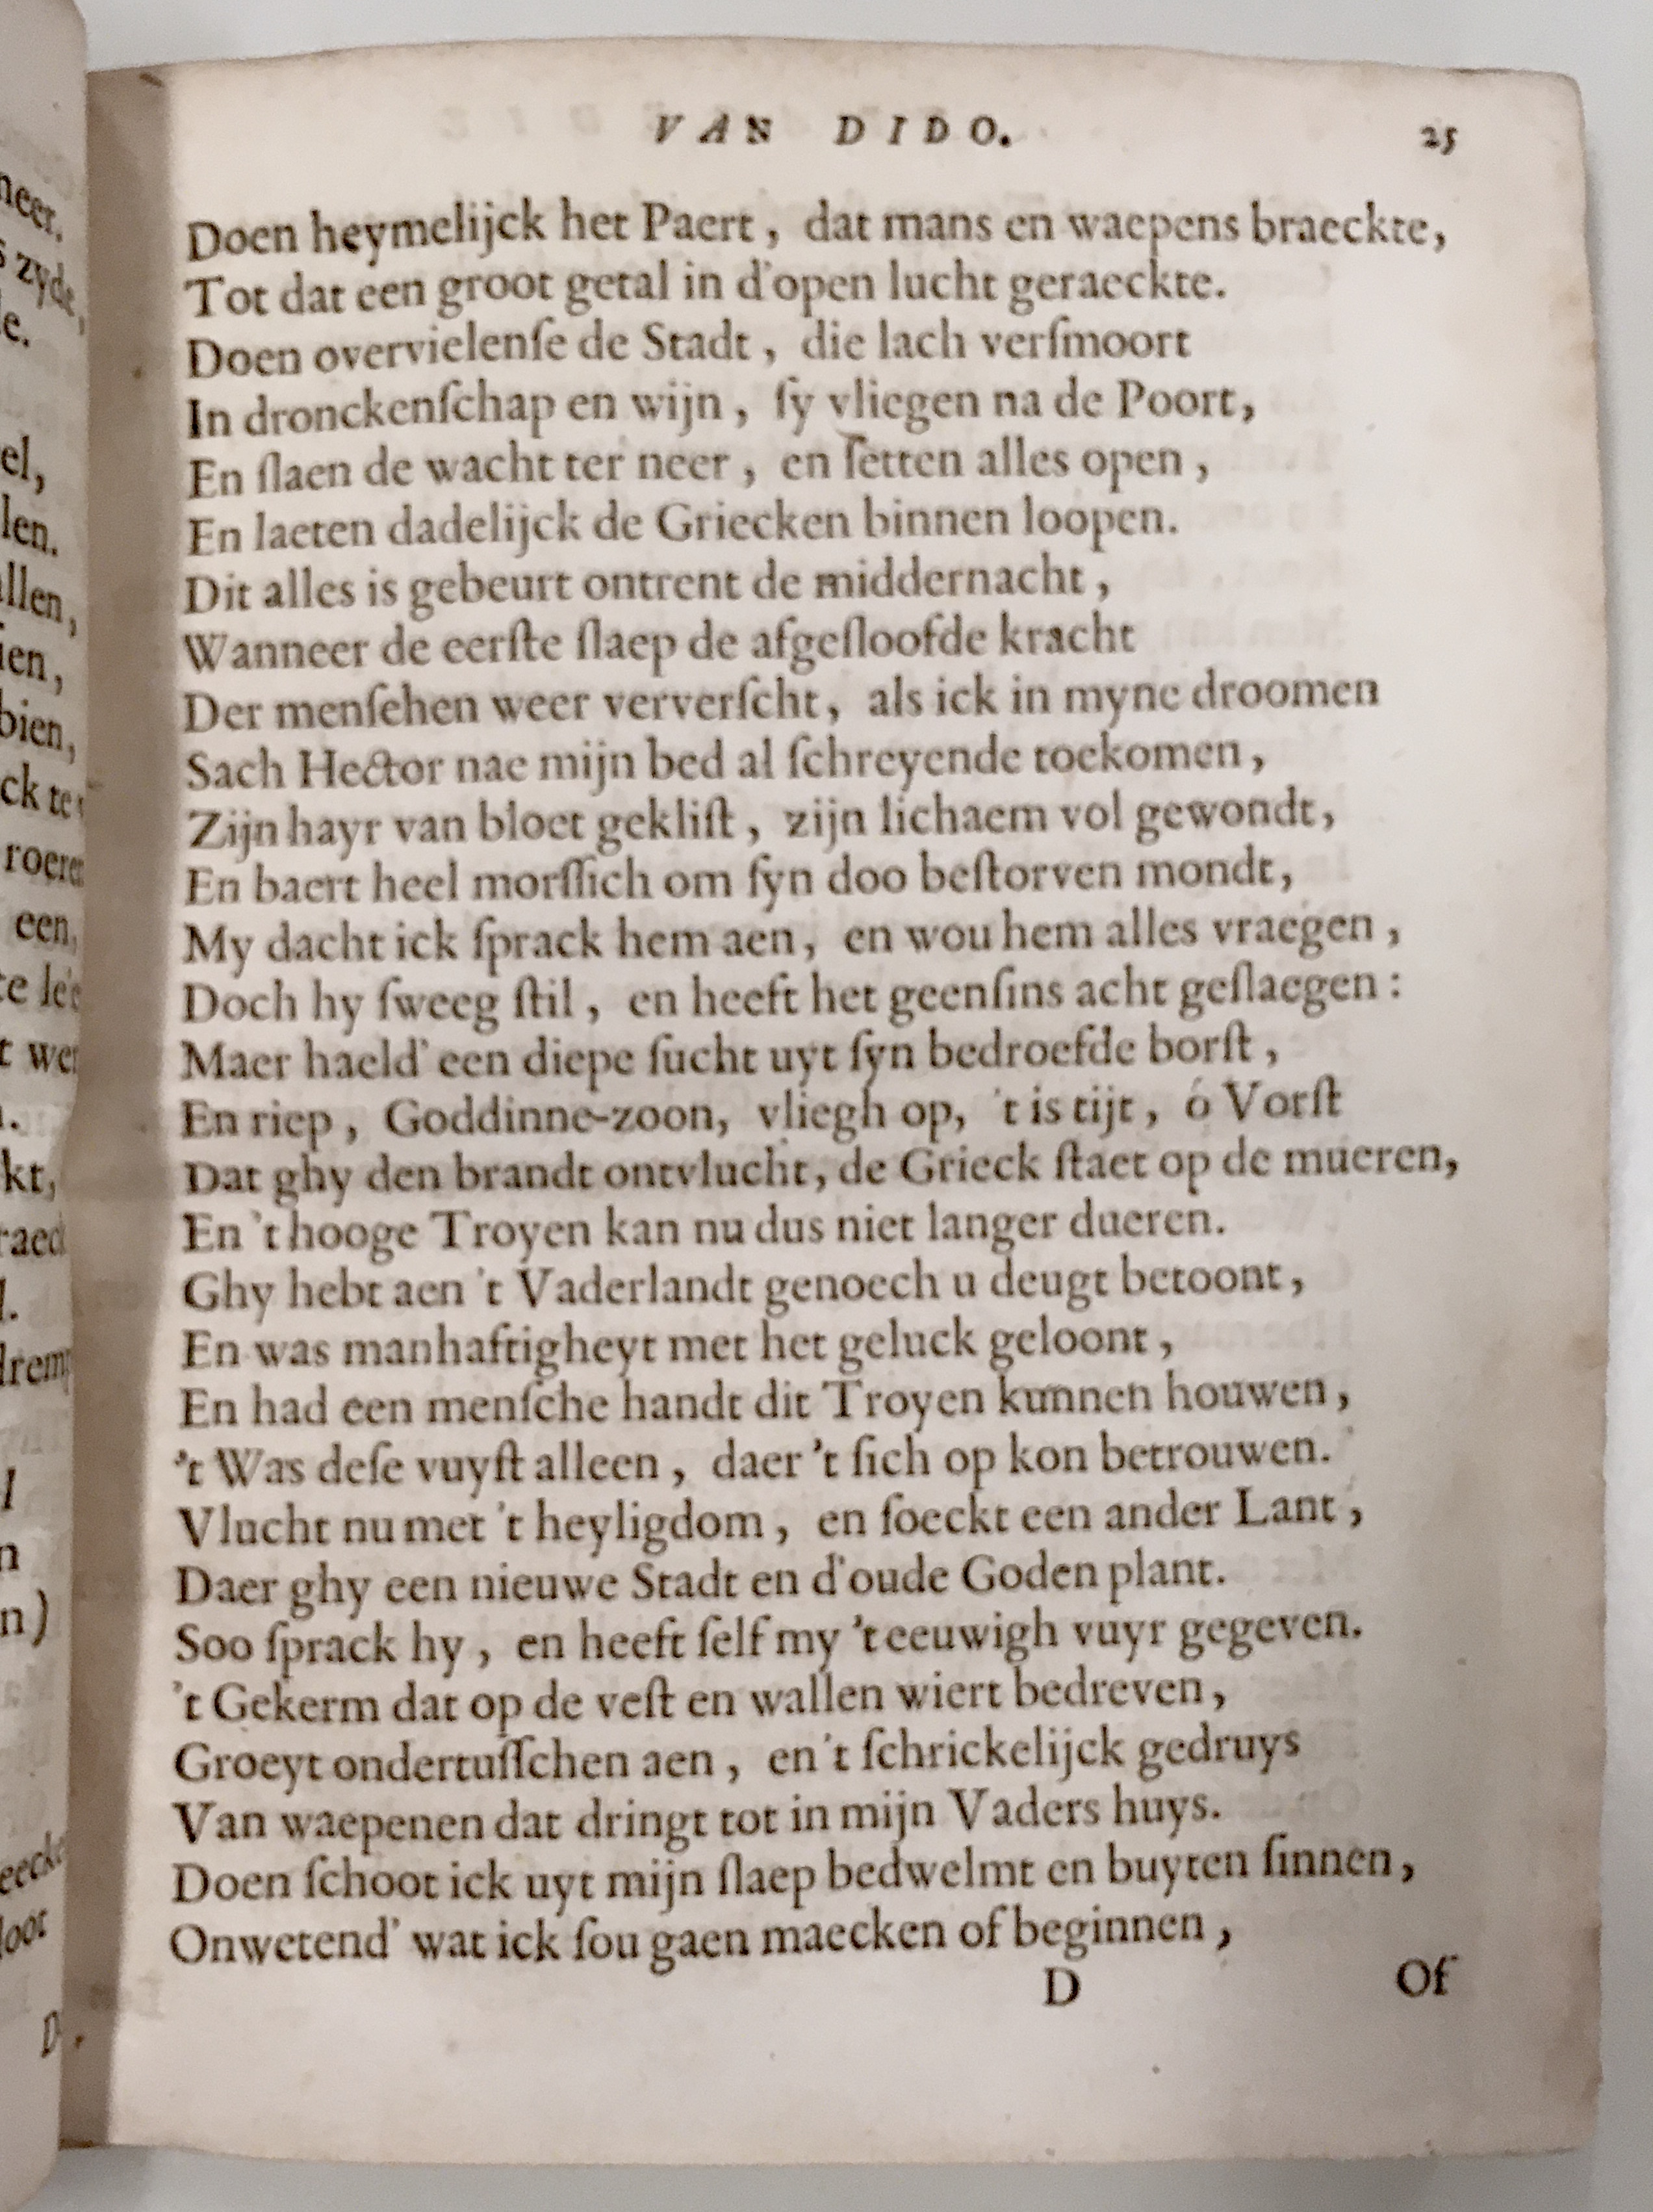 VAN DIDO. 25
Doen heymelijck het Paert, dat mans en waepens braeckte,
Tot dat een groot getal in d'open lucht geraeckte.
Doen overvielenſe de Stadt, die lach verſmoort
In dronckenſchap en wijn, ſy vliegen na de Poort,
En ſlaen de wacht ter neer, en ſetten alles open,
En laeten dadelijck de Griecken binnen loopen.
Dit alles is gebeurt ontrent de middernacht,
Wanneer de eerſte ſlaep de afgeſloofde kracht
Der menſehen weer ververſcht, als ick in myne droomen
Sach Hector nae mijn bed al ſchreyende toekomen,
Zijn hayr van bloet gekliſt, zijn lichaem vol gewondt,
En baert heel morſſich om ſyn doo beſtorven mondt,
My dacht ick ſprack hem aen, en wou hem alles vraegen,
Doch hy ſweeg ſtil, en heeft het geenſins acht geſlaegen:
Maer haeld' een diepe ſucht uyt ſyn bedroefde borſt,
En riep, Goddinne-zoon, vliegh op, 't is tijt, ó Vorſt
Dat ghy den brandt ontvlucht, de Grieck ſtaet op de mueren,
En 't hooge Troyen kan nu dus niet langer dueren.
Ghy hebt aen 't Vaderlandt genoech u deugt betoont,
En was manhaftigheyt met het geluck geloont,
En had een menſche handt dit Troyen kunnen houwen,
't Was deſe vuyſt alleen, daer 't ſich op kon betrouwen.
Vlucht nu met 't heyligdom, en ſoeckt een ander Lant,
Daer ghy een nieuwe Stadt en d'oude Goden plant.
Soo ſprack hy, en heeft ſelf my 't eeuwigh vuyr gegeven.
't Gekerm dat op de veſt en wallen wiert bedreven,
Groeyt ondertuſſchen aen, en 't ſchrickelijck gedruys
Van waepenen dat dringt tot in mijn Vaders huys.
Doen ſchoot ick uyt mijn ſlaep bedwelmt en buyten ſinnen,
Onwetend' wat ick ſou gaen maecken of beginnen,
D Of